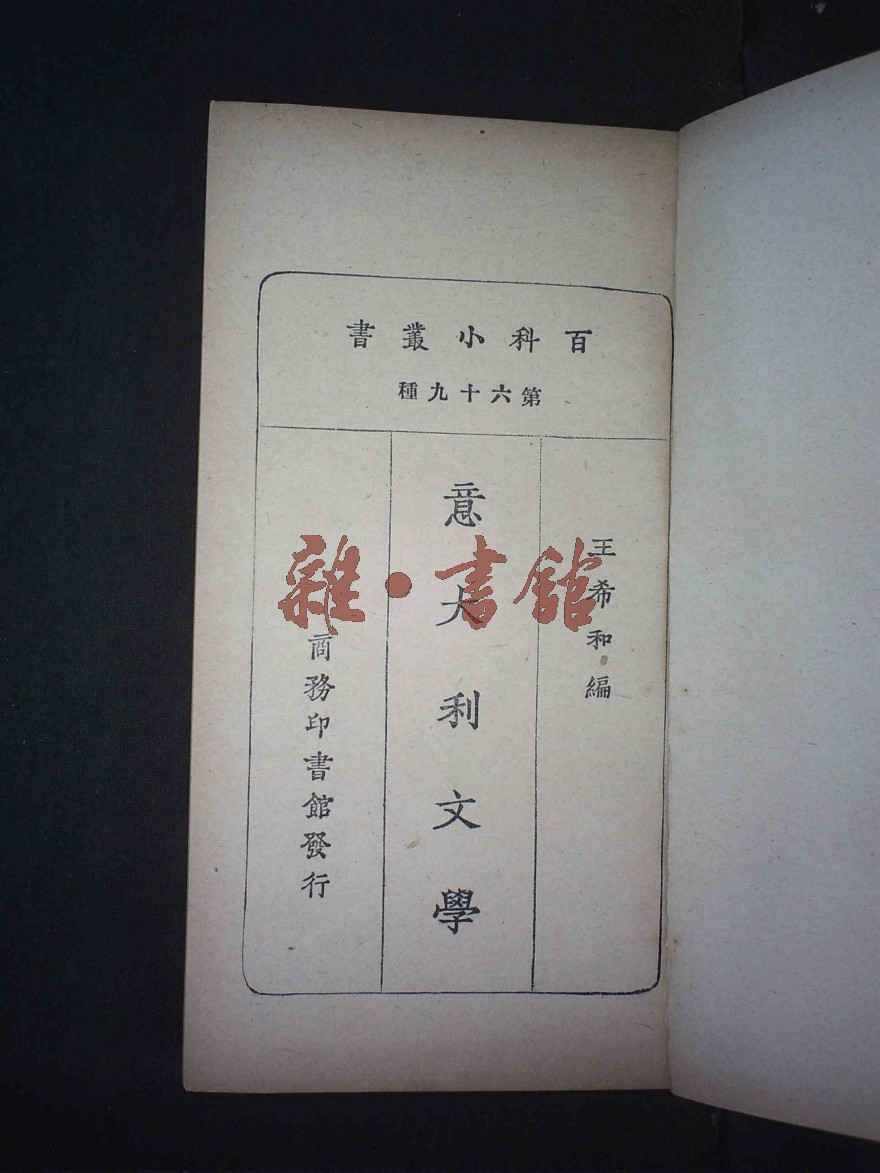 百科小叢書
第六十九種
王希和編
意大利文學
商務印書館發行
雜·書館